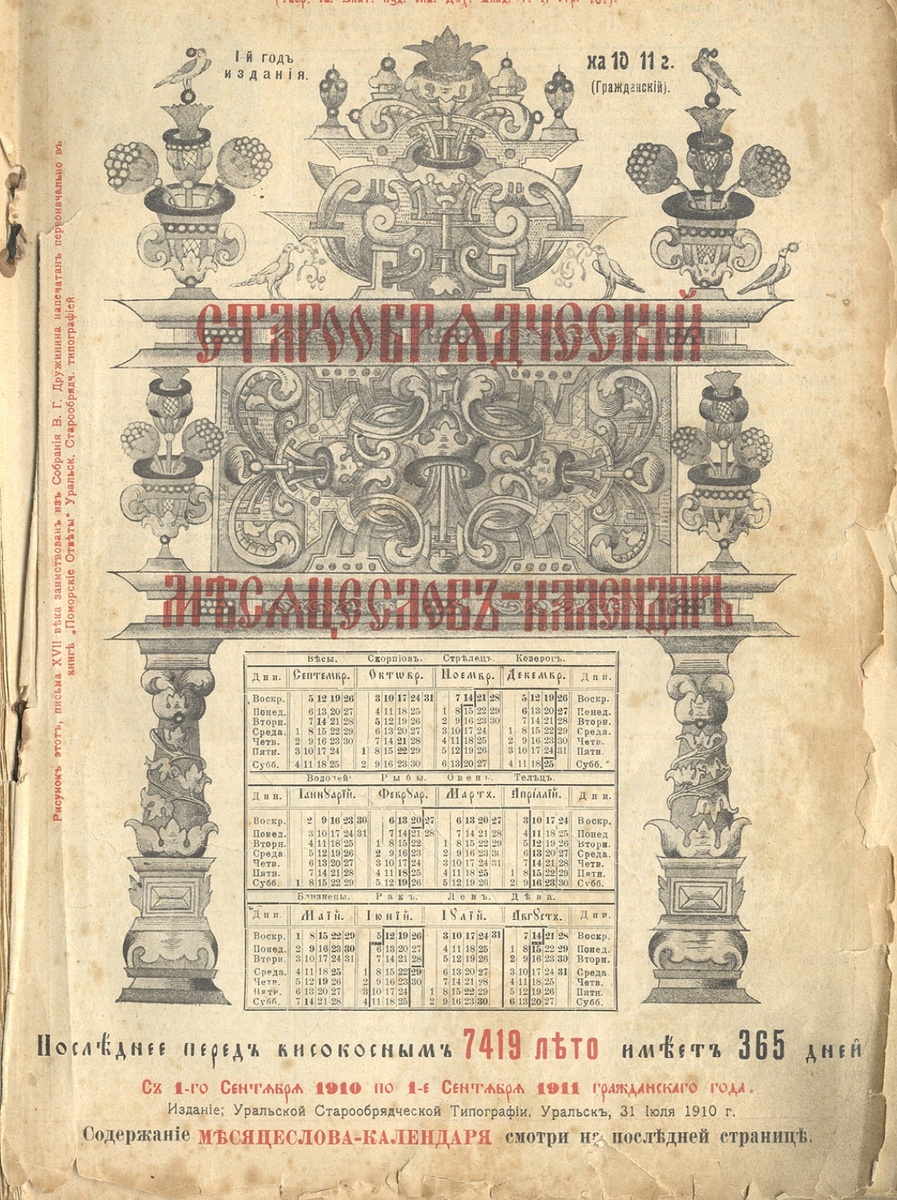 1-й годъ
изданія.
на 10 11 г.
(Гражданскій).
Рисунокъ этотъ, письма XVII вѣка заимствованъ изъ Собранія В. Г. Дружинина напечатанъ первоначально въ
книгѣ „Поморскіе Отвѣты“ Уральск. Старообрядч. типографіей.
СТАРООБРѦДЧЕСКІЙ
МѢСѦЦЕСЛОВЪ-КАЛЕНДАРЬ
Вѣсы. Скорпіонъ. Стрѣлецъ. Козерогъ.
Дни. Септемвр. Октѡвр. Ноемвр. Декемвр. Дни.
Воскр. 5 12 19 26 3 10 17 24 31 7 14 21 28 5 12 19 26 Воскр.
Понед. 6 13 20 27 4 11 18 25 1 8 15 22 29 6 13 20 27 Понед.
Вторн. 7 14 21 28 5 12 19 26 2 9 16 23 30 7 14 21 28 Вторн.
Среда. 1 8 15 22 29 6 13 20 27 3 10 17 24 1 8 15 22 29 Среда.
Четв. 2 9 16 23 30 7 14 21 28 4 11 18 25 2 9 16 23 30 Четв.
Пятн. 3 10 17 24 1 8 15 22 29 5 12 19 26 3 10 17 24 31 Пятн.
Субб. 4 11 18 25 2 9 16 23 30 6 13 20 27 4 11 18 25 Субб.
Водолей. Рыбы. Овенъ. Телецъ.
Дни. Іаннꙋарій. Феврꙋар. Мартъ. Апріллій. Дни.
Воскр. 2 9 16 23 30 6 13 20 27 6 13 20 27 3 10 17 24 Воскр.
Понед. 3 10 17 24 31 7 14 21 28 7 14 21 28 4 11 18 25 Понед
Вторн. 4 11 18 25 1 8 15 22 1 8 15 22 29 5 12 19 26 Вторн.
Среда. 5 12 19 26 2 9 16 23 2 9 16 23 30 6 13 20 27 Среда.
Четв. 6 13 20 27 3 10 17 24 3 10 17 24 31 7 14 21 28 Четв.
Пятн. 7 14 21 28 4 11 18 25 4 11 18 25 1 8 15 22 29 Пятн.
Субб. 1 8 15 22 29 5 12 19 26 5 12 19 26 2 9 16 23 30 Субб.
Близнецы. Ракъ. Левъ. Дѣва.
Дни. Маій. Іюній. Іꙋлій. Авгꙋстъ. Дни.
Воскр. 1 8 15 22 29 5 12 19 26 3 10 17 24 31 7 14 21 28 Воскр.
Понед. 2 9 16 23 30 6 13 20 27 4 11 18 25 1 8 15 22 29 Понед.
Вторн. 3 10 17 24 31 7 14 21 28 5 12 19 26 2 9 16 23 30 Вторн.
Среда. 4 11 18 25 1 8 15 22 29 6 13 20 27 3 10 17 24 31 Среда.
Четв. 5 12 19 26 2 9 16 23 30 7 14 21 28 4 11 18 25 Четв.
Пятн. 6 13 20 27 3 10 17 24 1 8 15 22 29 5 12 19 26 Пятн.
Субб. 7 14 21 28 4 11 18 25 2 9 16 23 30 6 13 20 27 Субб.
Послѣднее передъ високоснымъ 7419 лѣто имѣетъ 365 дней
Съ 1-го Сентѧбрѧ 1910 по 1-е Сентѧбрѧ 1911 гражданскаго года.
Изданіе; Уральской Старообрядческой Типографіи. Уральскъ, 31 Іюля 1910 г.
Содержаніе МѢСЯЦЕСЛОВА-КАЛЕНДАРЯ смотри на послѣдней страницѣ.